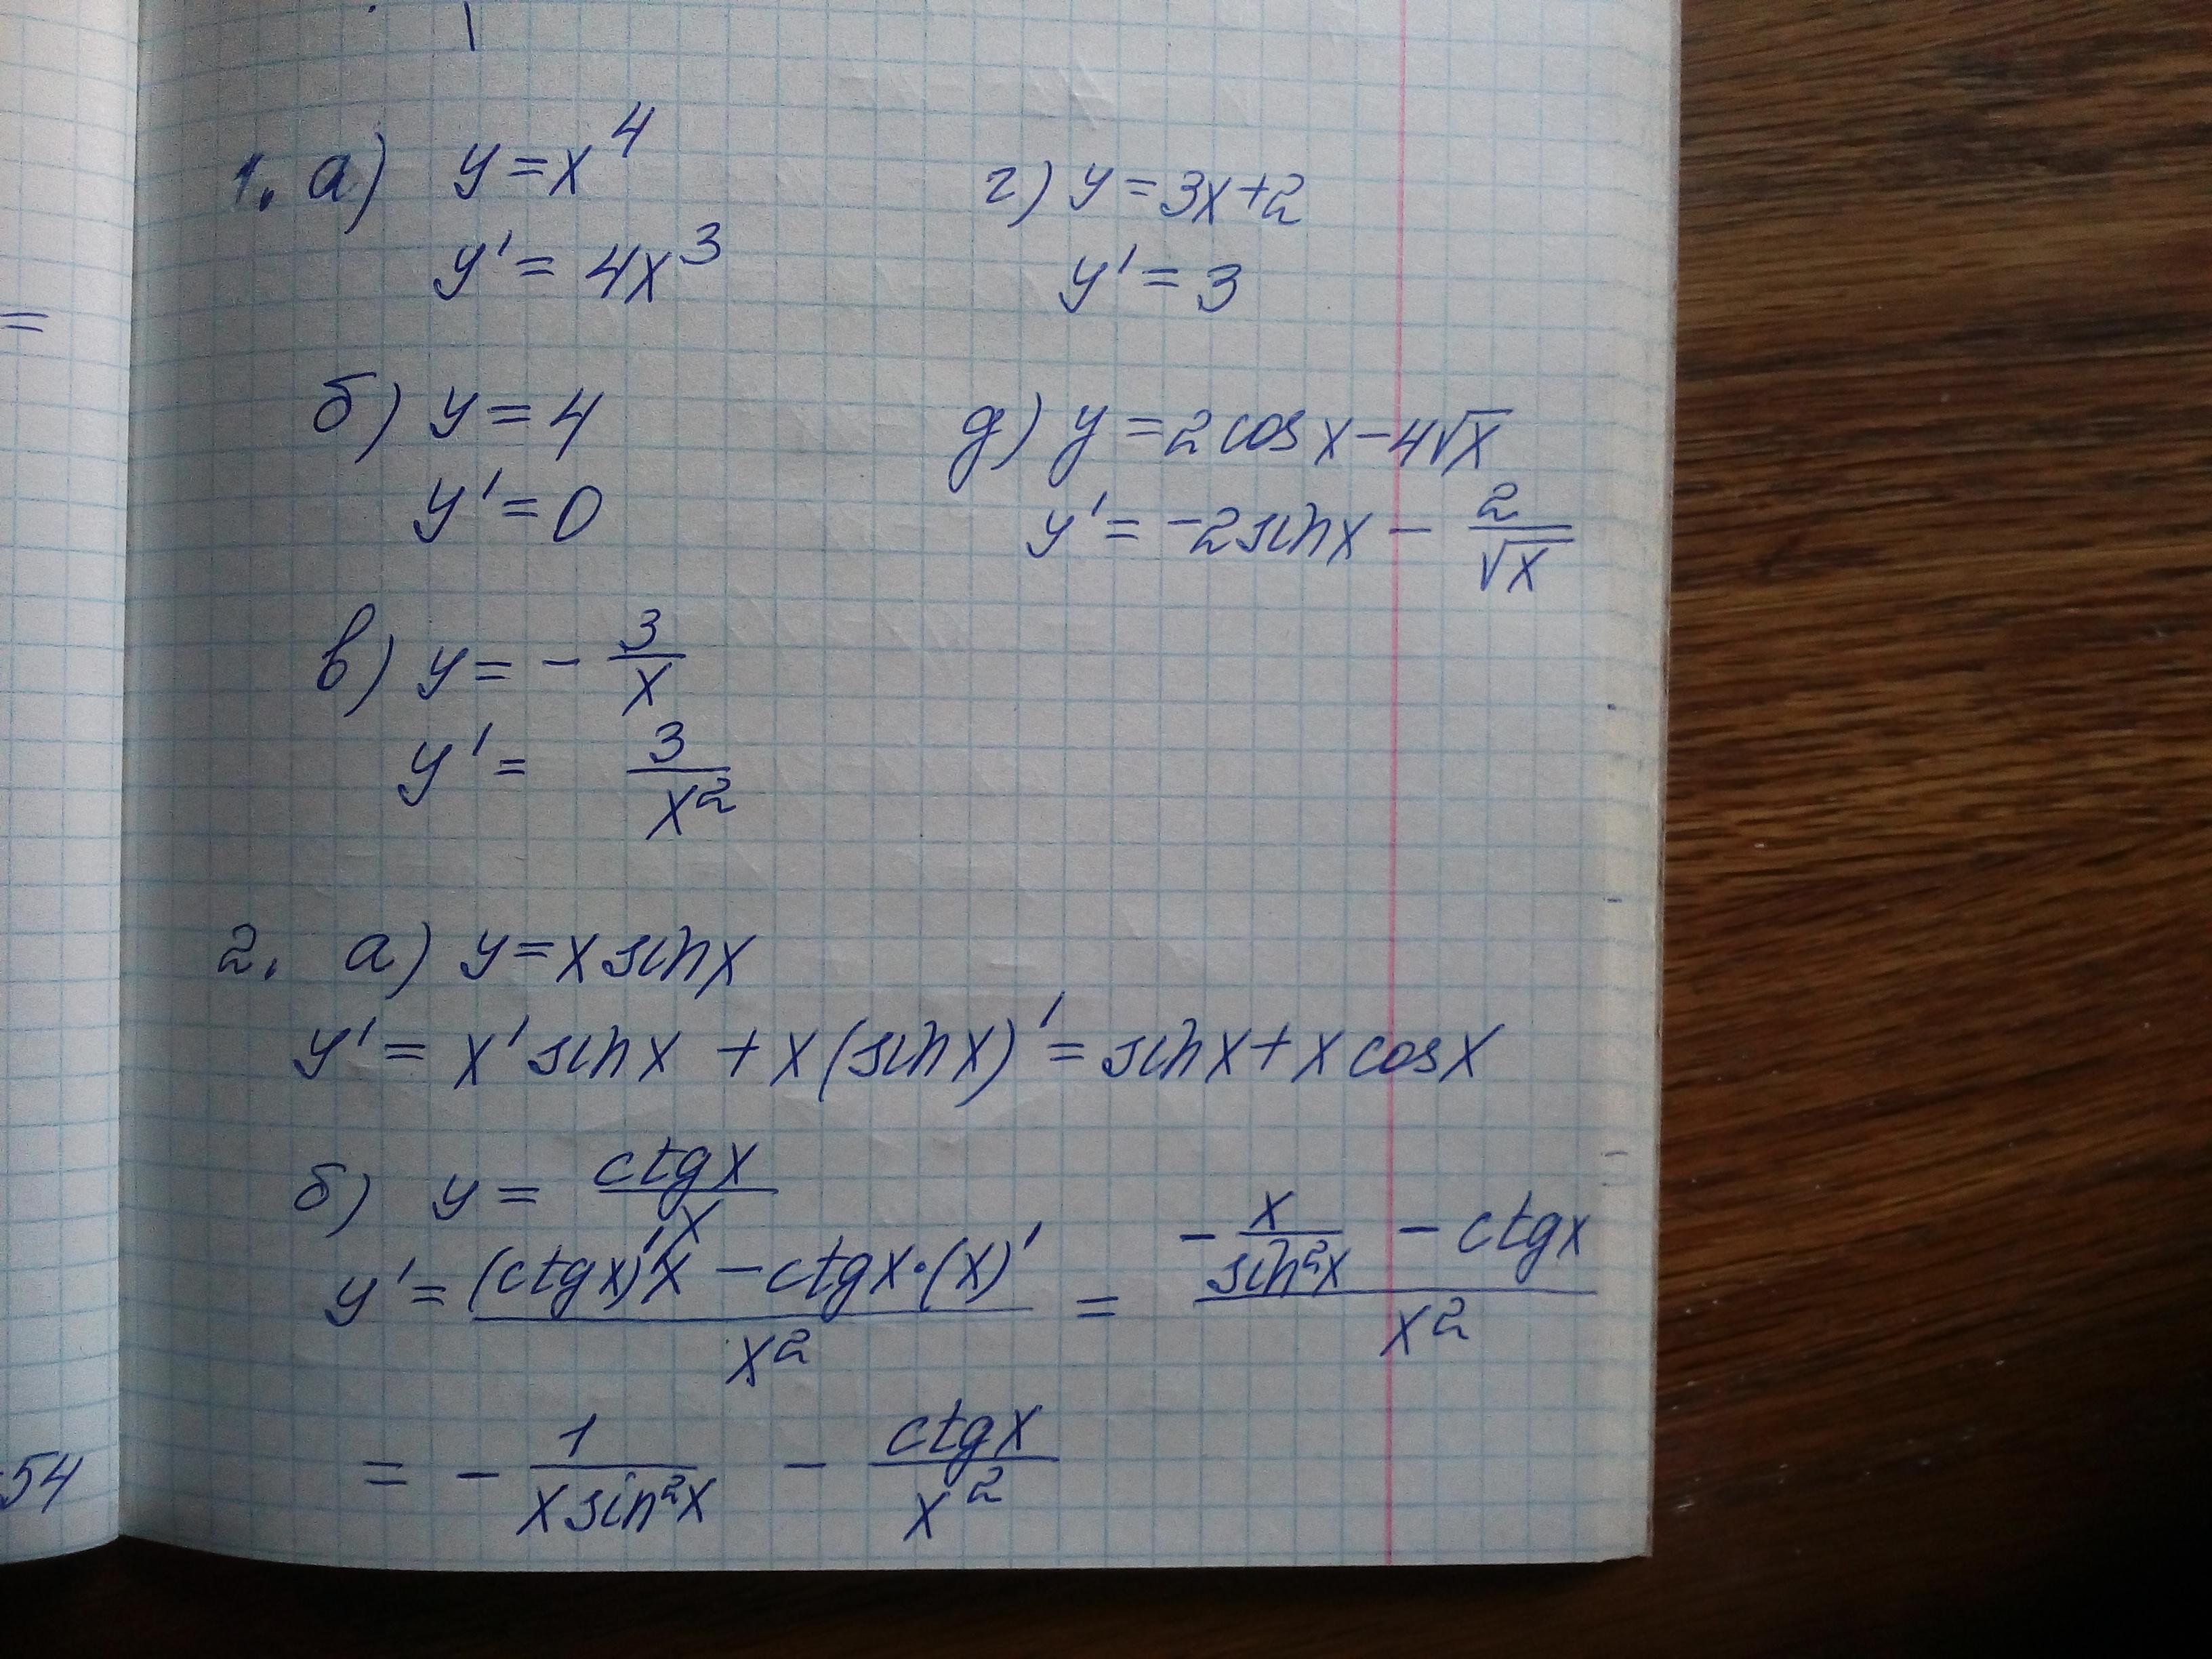 1. а) y = x⁴
y' = 4x³
б) y = 4
y' = 0
в) y = - 3/x
y' = 3/x²
г) y = 3x+2
y' = 3
д) y = 2cos x - 4√x
y' = -2sin x - 2/√x
2. а) y = x sin x
y' = x' sin x + x (sin x)' = sin x + x cos x
б) y = ctg x / x
y' = ((ctg x)' x - ctg x · (x)') / x² = (- x/sin²x - ctg x) / x²
= - 1/(x sin²x) - ctg x / x²
=
54